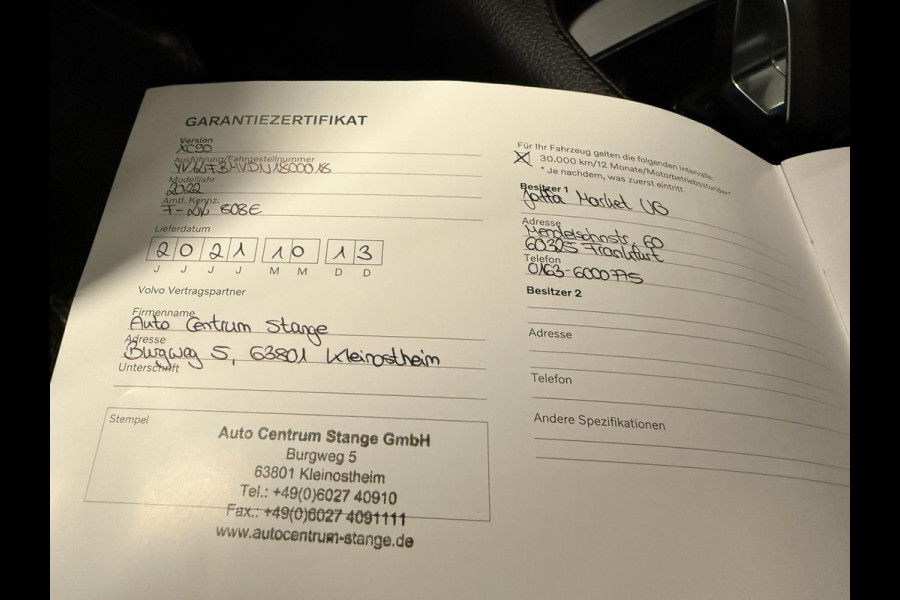 GARANTIEZERTIFIKAT
Version
XC90
Ausführung/Fahrgestellnummer
Modelljahr
2022
Amtl. Kennz.
808E
Lieferdatum
2 0 2 1 1 0 1 3
J J J J M M D D
Volvo Vertragspartner
Firmenname
Auto Centrum Stange
Adresse
Burgweg 5, 63801 Kleinostheim
Unterschrift
Stempel
Auto Centrum Stange GmbH
Burgweg 5
63801 Kleinostheim
Tel.: +49(0)6027 40910
Fax.: +49(0)6027 4091111
www.autocentrum-stange.de
Für Ihr Fahrzeug gelten die folgenden Intervalle:
30.000 km/12 Monate/Motorbetriebsstunden*
* Je nachdem, was zuerst eintritt
Besitzer 1
Jaffa Market UG
Adresse
60
60325 Frankfurt
Telefon
0163-6000775
Besitzer 2
Adresse
Telefon
Andere Spezifikationen